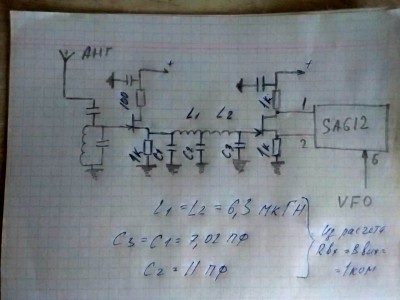 АНТ
+
+
100
1к
L₁ L₂
1
SA612
1к
C₁
C₂
C₃
1к
2
6
VFO
L₁ = L₂ = 6,3 мкГН
C₃ = C₁ = 7,02 пФ
C₂ = 11 пФ
Из расчета
Rвх = Rвых =
= 1 ком